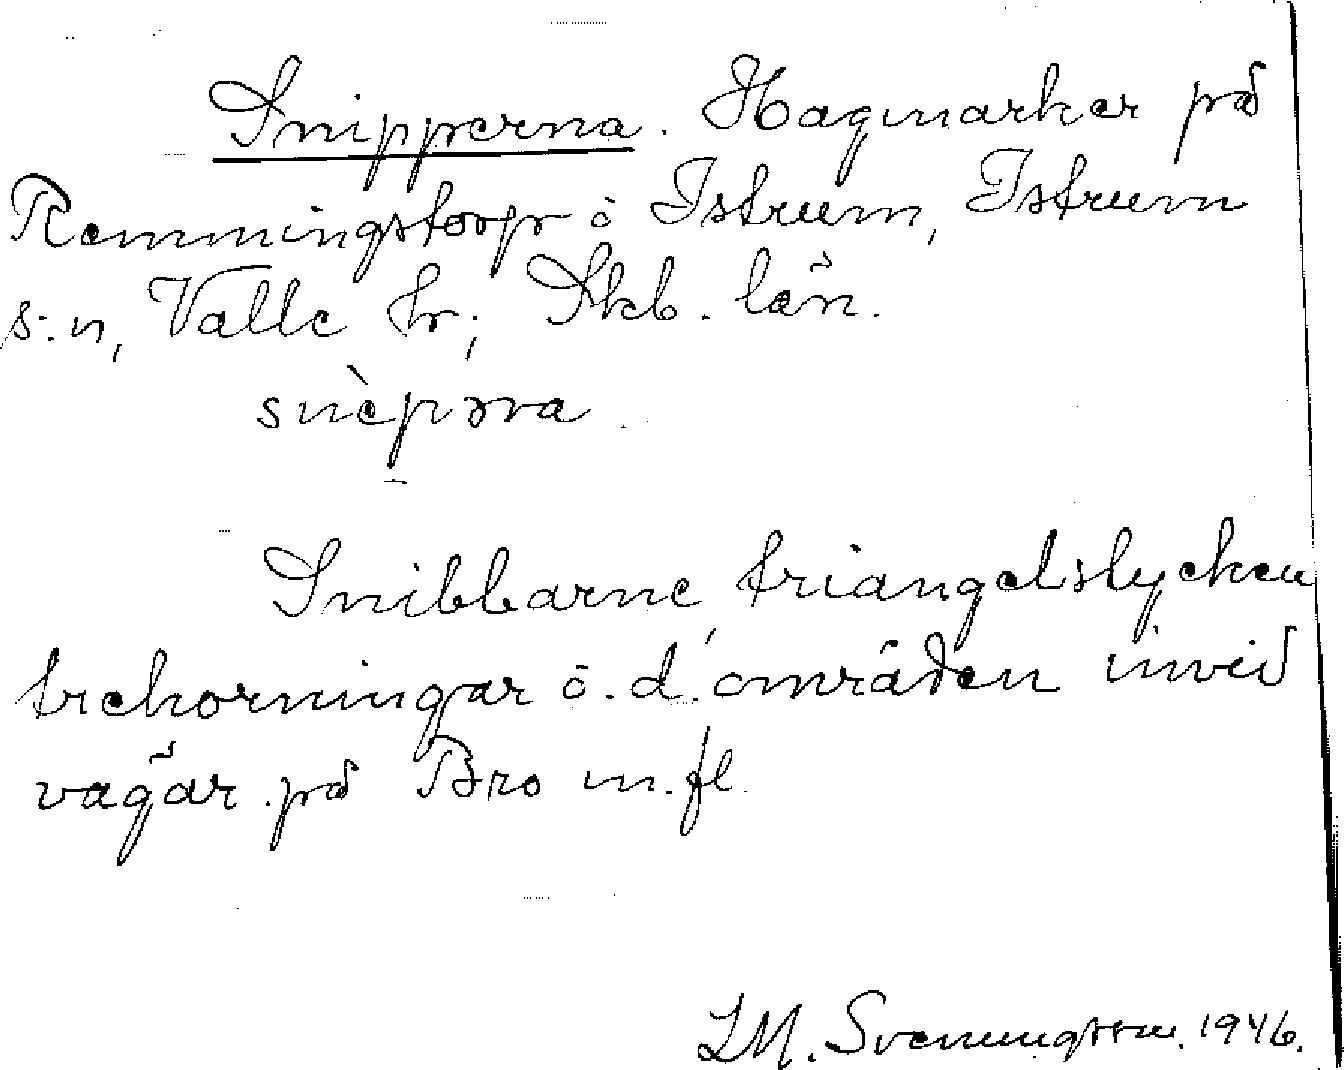 Snipperna. Hagmarker på
Remmingstorp i Istrum, Istrum
s:n, Valle hr; Skb. län.
snèpəra.
Snibbarne, triangelstycken
trekorningar o. d. områden invid
vägar på Bro m.fl.
LM. Svenungsson. 1946.